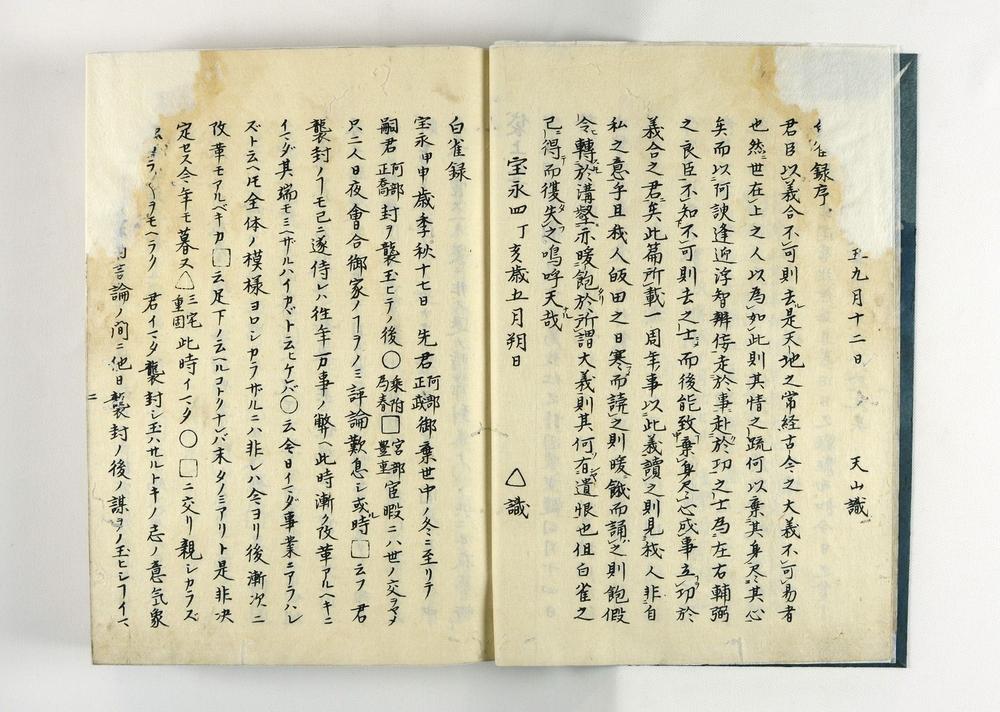 雀録序
五九月十二日　天山識
君臣以義合不可則去是天地之常経古今之大義不可易者
也然世在上之人以為如此則其情之疏何以棄其身尽其心
矣而以何諛逢迎浮智辨侫走於事赴於功之士為左右輔弼
之良臣不知不可則去之士而後能致棄身尽心成事立功於
義合之君矣此篇所載一周年事以此義讀之則見我人非自
私之意乎且我人皈田之日寒而読之則暖餓而誦之則飽假
令轉於溝壑亦暖飽於所謂大義則其何有遺恨也但白雀之
己得而復失之嗚呼天哉
宝永四丁亥歳五月朔日　△識
白雀録
宝永甲申歳季秋十七日先君阿部正武御棄世中ノ冬ニ至リテ
嗣君阿部正喬封ヲ襲玉ヒテ後○乗附乃春□宮部豊重官暇ニハ世ノ交ヲヤメ
只二人日夜會合御家ノヿヲノミ評論歎息シ或時□云フ君
襲封ノヿモ已ニ遂侍レハ往年万事ノ弊ヘ此時漸ク改革アルヘキニ
イマダ其端モミヘザルハイカヾト云ヒケレバ○云今日イマダ事業ニアラハレ
ズト云ヘトモ全体ノ模様ヨロシカラザルニハ非レハ今ヨリ後漸次ニ
改革モアルベキカ□云足下ノ云ヘルコトクナレバ末タノミアリト是非決
定セス今年モ暮ス△三宅重固此時イマタ○□ニ交リ親シカラズ
ヲモヘラク　君イマタ襲封シ玉ハサルトキノ志ノ意気象
言論ノ間ニ他日襲封ノ後ノ謀ヲノ玉ヒシヿイマ
二